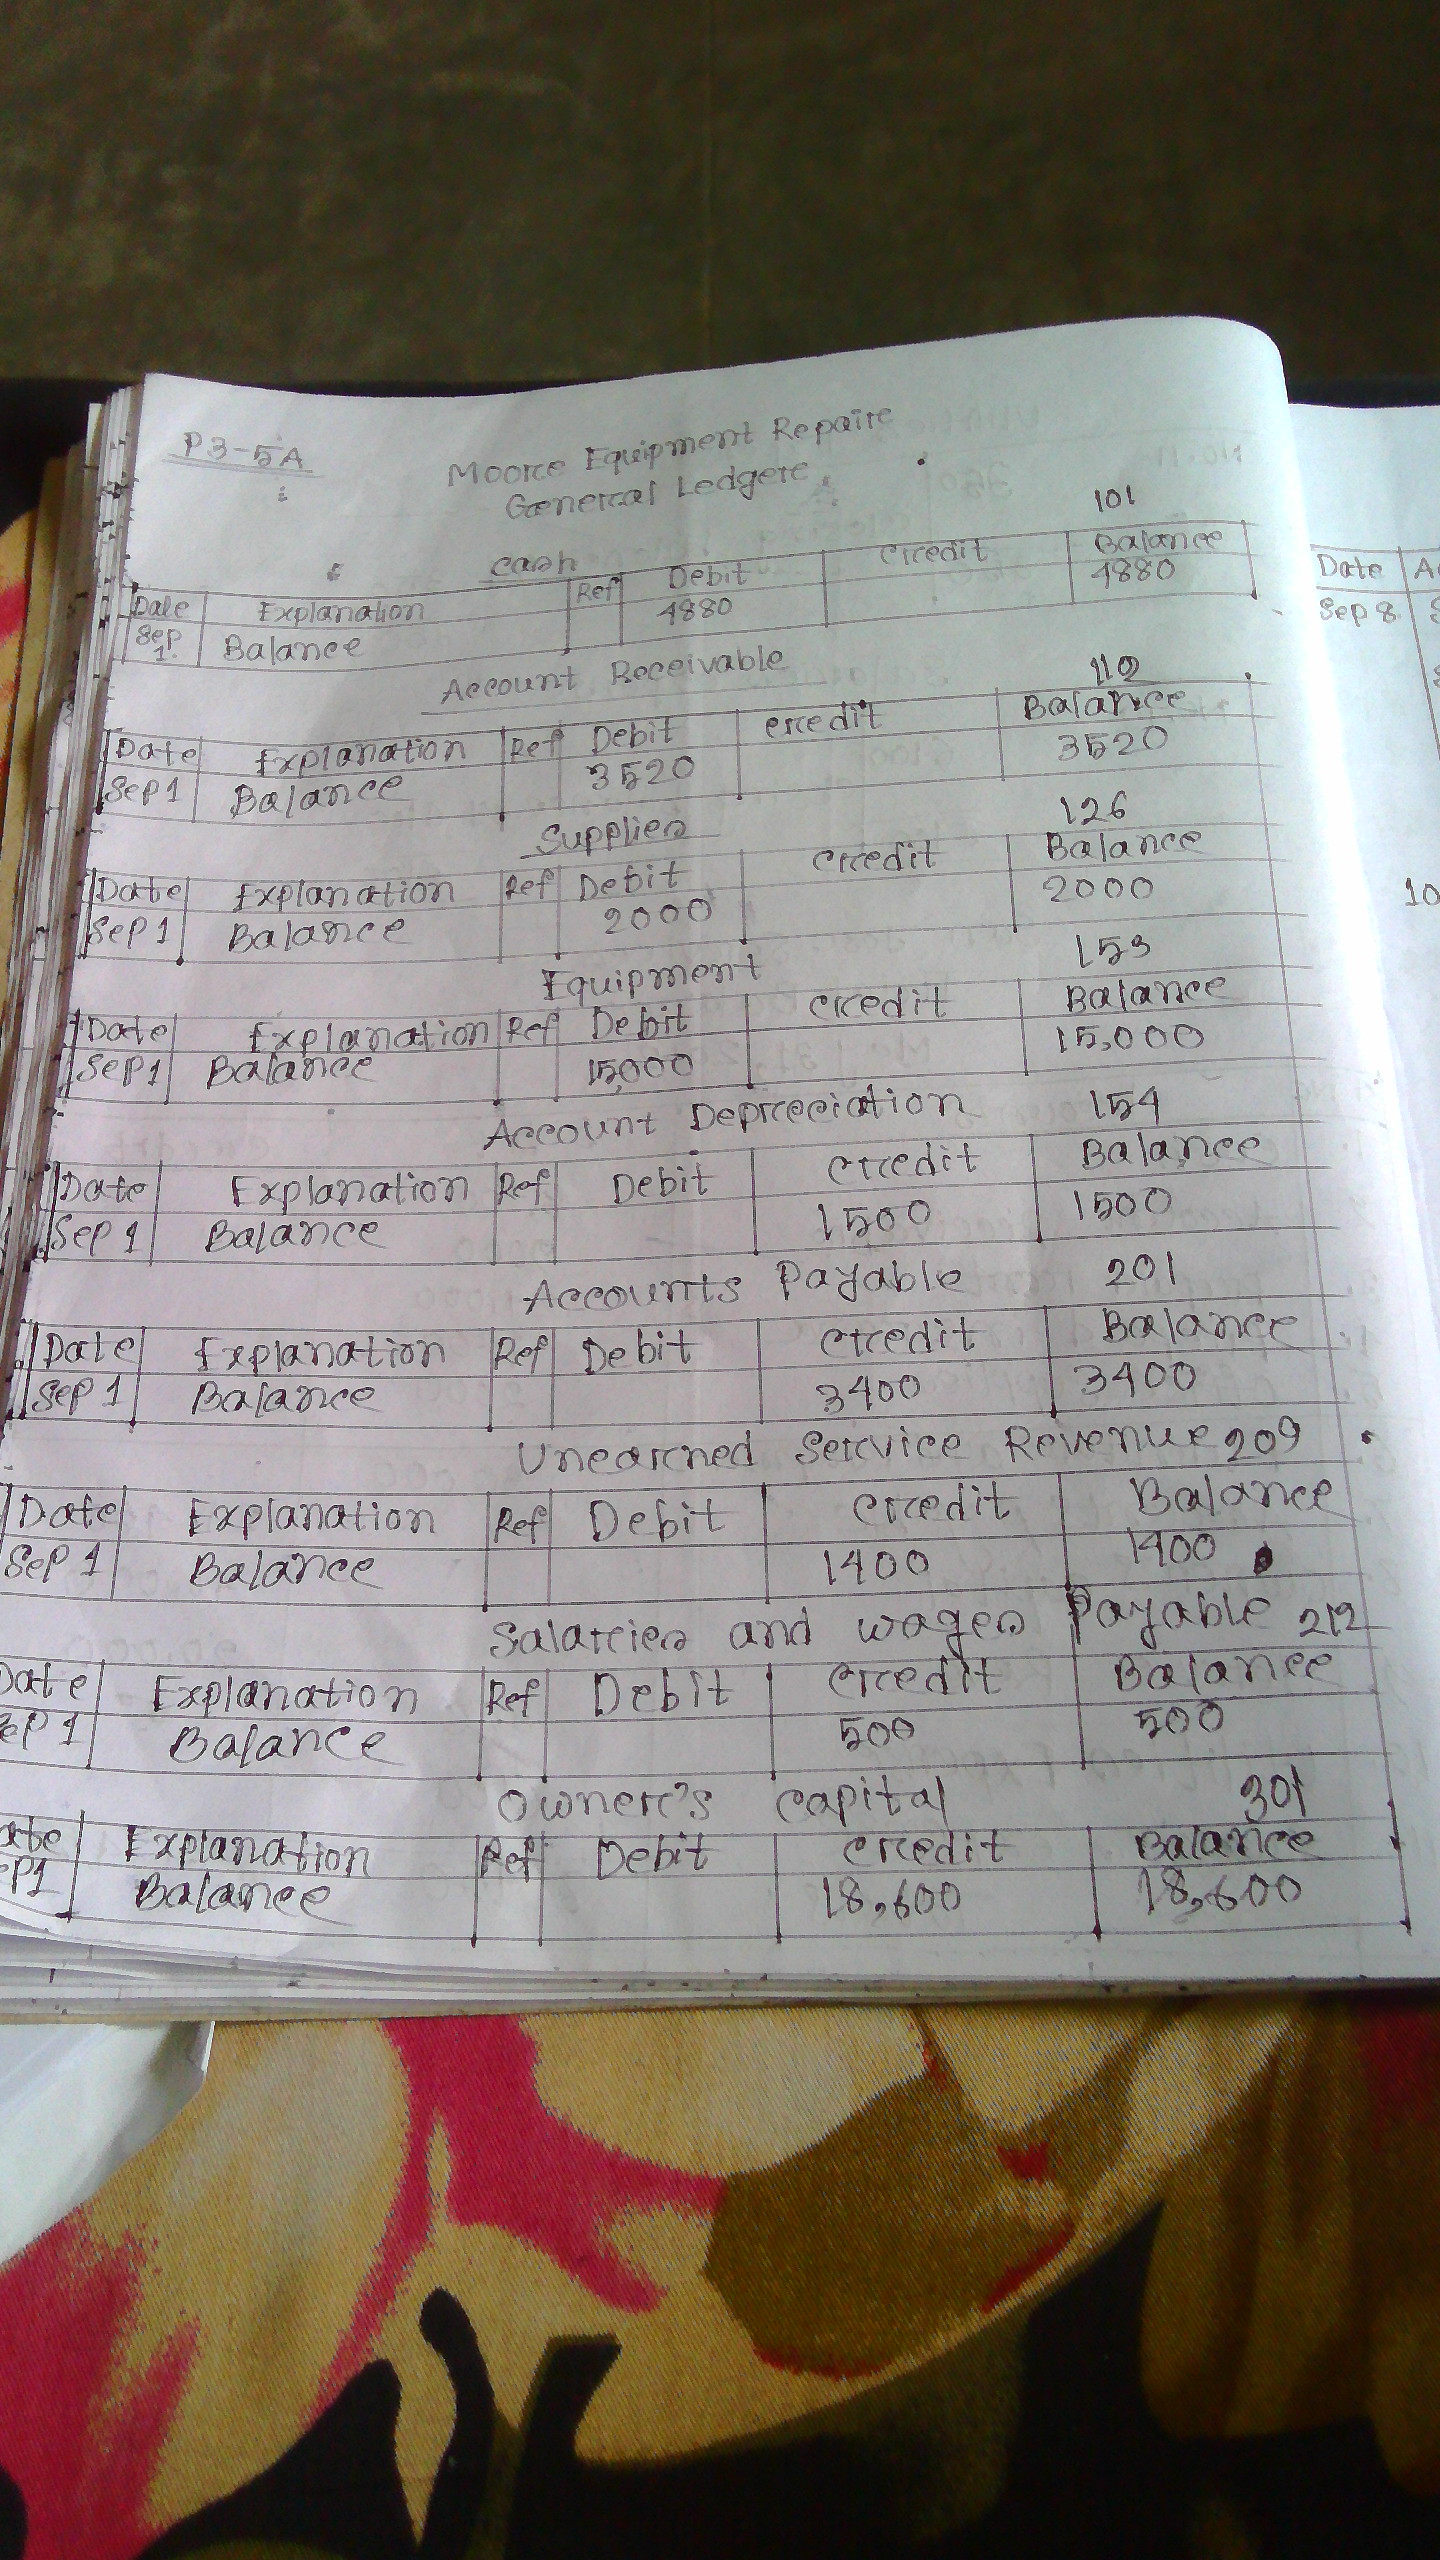 P3-5A
Moore Equipment Repair
General Ledger
Cash 101
Date Explanation Ref Debit Credit Balance
Sep 1. Balance 4880 4880
Account Receivable 112
Date Explanation Ref Debit Credit Balance
Sep 1 Balance 3520 3520
Supplies 126
Date Explanation Ref Debit Credit Balance
Sep 1 Balance 2000 2000
Equipment 153
Date Explanation Ref Debit Credit Balance
Sep 1 Balance 15,000 15,000
Account Depreciation 154
Date Explanation Ref Debit Credit Balance
Sep 1 Balance 1500 1500
Accounts Payable 201
Date Explanation Ref Debit Credit Balance
Sep 1 Balance 3400 3400
Unearned Service Revenue 209
Date Explanation Ref Debit Credit Balance
Sep 1 Balance 1400 1400
Salaries and wages Payable 212
Date Explanation Ref Debit Credit Balance
ep 1 Balance 500 500
Owner's Capital 301
ate Explanation Ref Debit Credit Balance
ep 1 Balance 18,600 18,600
Date
Sep 8
10